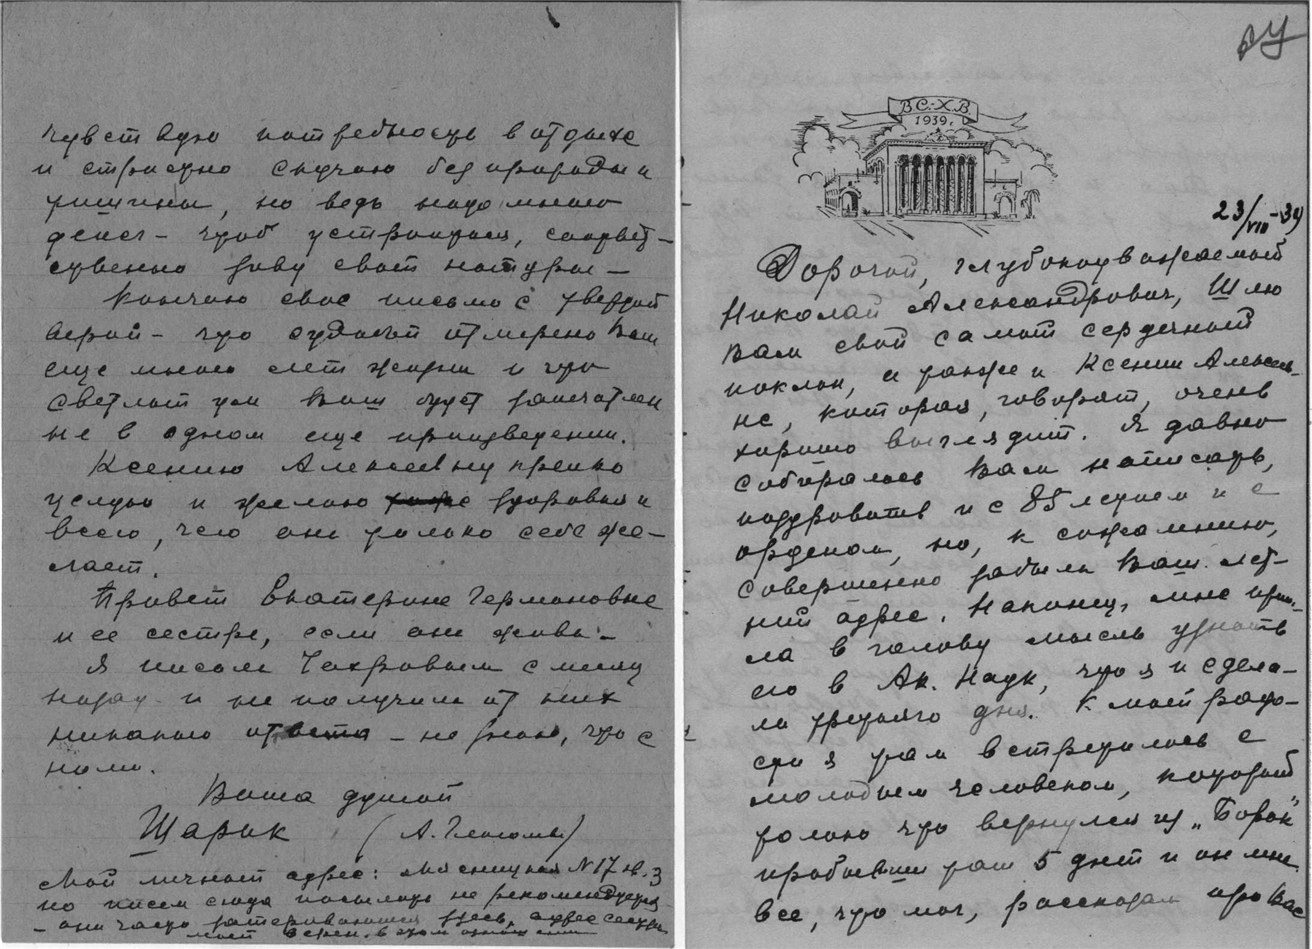 чувствую потребность в отдыхе
и страстно скучаю без природы и
тишины, но ведь надо много
денег – чтоб устроиться, соответ-
ственно зову своей натуры –
Кончаю свое письмо с твердой
верой – что судьбой отмерено Вам
еще много лет жизни и что
светлый ум Ваш будет запечатлен
не в одном еще произведении.
Ксению Алексеевну крепко
целую и желаю здоровья и
всего, чего она только себе же-
лает.
Привет Екатерине Германовне
и ее сестре, если они живы. –
Я писала Чехровым с месяц
назад и не получила от них
никакого ответа – не знаю, что с
ними.
Ваша душой
Шарик (А. )
Мой личный адрес: Мясницкая № 17 кв. 3
но писем сюда посылать не рекомендуется
– они часто затериваются здесь, адрес сестры
мой верен. в этом
ВСХВ
1939 г.
23/VIII – 39
Дорогой, глубокоуважаемый
Николай Александрович, Шлю
Вам свой самый сердечный
поклон, а также и Ксении Алексеев-
не, которая, говорят, очень
хорошо выглядит. Я давно
собиралась Вам написать,
поздравить и с 85 летием и с
орденом, но, к сожалению,
совершенно забыла Ваш лет-
ний адрес. Наконец, мне приш-
ла в голову мысль узнать
его в Ак. Наук, что я и сдела-
ла третьего дня. К моей радо-
сти я там встретилась с
молодым человеком, который
только что вернулся из „Борок"
пробывши там 5 дней и он мне
все, что мог, рассказал про Вас